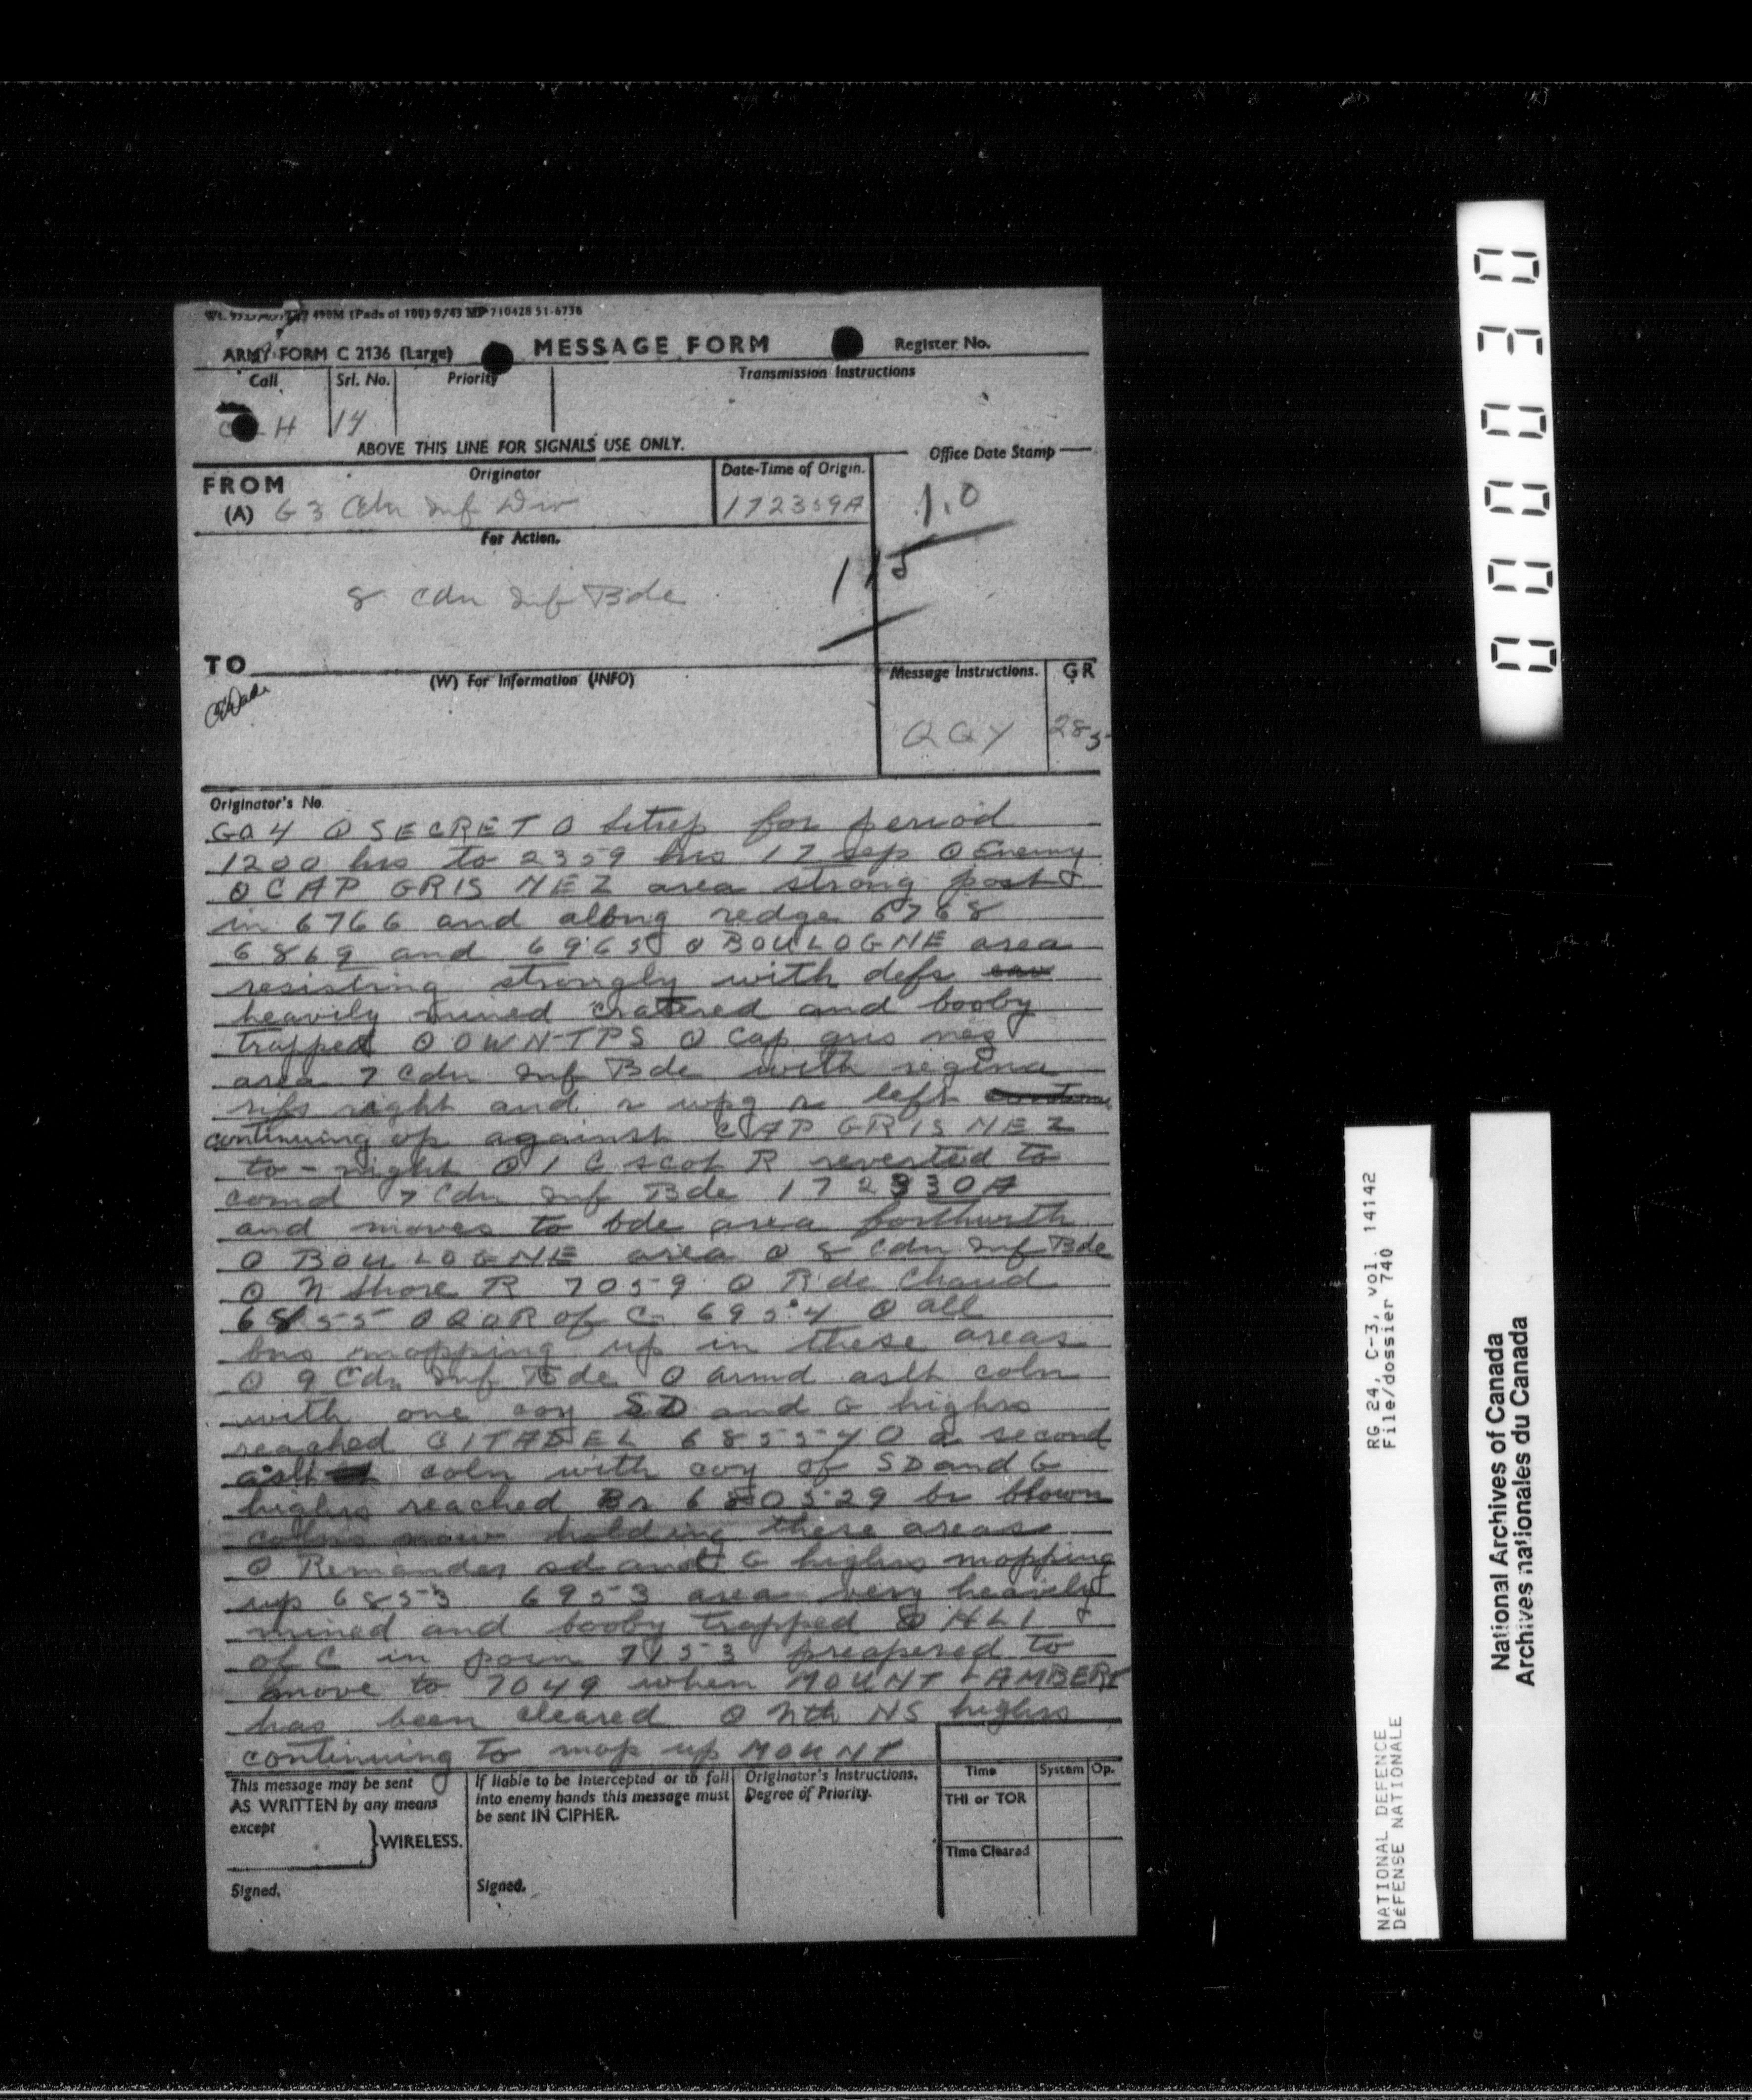 490M (Pads of 100) 9/43 MP 710428 51-6736
ARMY FORM C 2136 (Large) MESSAGE FORM Register No.
Call Srl. No. Priority Transmission Instructions
H 14
ABOVE THIS LINE FOR SIGNALS USE ONLY.
Office Date Stamp
FROM Originator Date-Time of Origin.
(A) G 3 Cdn Inf Div 172359A
1.0
For Action.
115
8 Cdn Inf Bde
TO
(W) For Information (INFO) Message Instructions. GR
QQY 285
Originator's No.
GO4 O SECRET O Sitrep for period
1200 hrs to 2359 hrs 17 sep O Enemy
O CAP GRIS NEZ area strong posts
in 6766 and along redge 6768
6869 and 6965 O BOULOGNE area
resisting strongly with defs
heavily mined cratered and booby
trapped O OWN TPS O Cap gris nez
area 7 Cdn Inf Bde with regina
rifs right and r wpg r left
continuing op against CAP GRIS NEZ
to-night O 1 C scot R reverted to
comd 7 Cdn Inf Bde 172330A
and moves to bde area forthwith
O BOULOGNE area O 8 Cdn Inf Bde
O N Shore R 7059 O R de Chaud
6855 O QOR of C 6954 O all
bns mopping up in these areas
O 9 Cdn Inf Bde O armd aslt coln
with one coy SD and G highrs
reached CITADEL 685540 a second
aslt coln with coy of SD and G
highrs reached Br 680529 br blown
colns now holding these areas
O Remainder sd and G highrs mopping
up 6853 6953 area very heavily
mined and booby trapped O HLI
of C in posn 7153 preapered to
move to 7049 when MOUNT LAMBERT
has been cleared O Nth NS highrs
continuing to mop up MOUNT
This message may be sent
AS WRITTEN by any means
except
WIRELESS.
Signed.
If liable to be intercepted or to fall
into enemy hands this message must
be sent IN CIPHER.
Signed.
Originator's Instructions.
Degree of Priority.
Time System Op.
THI or TOR
Time Cleared
000030
RG 24, C-3, vol. 14142
File/dossier 740
NATIONAL DEFENCE
DÉFENSE NATIONALE
National Archives of Canada
Archives nationales du Canada